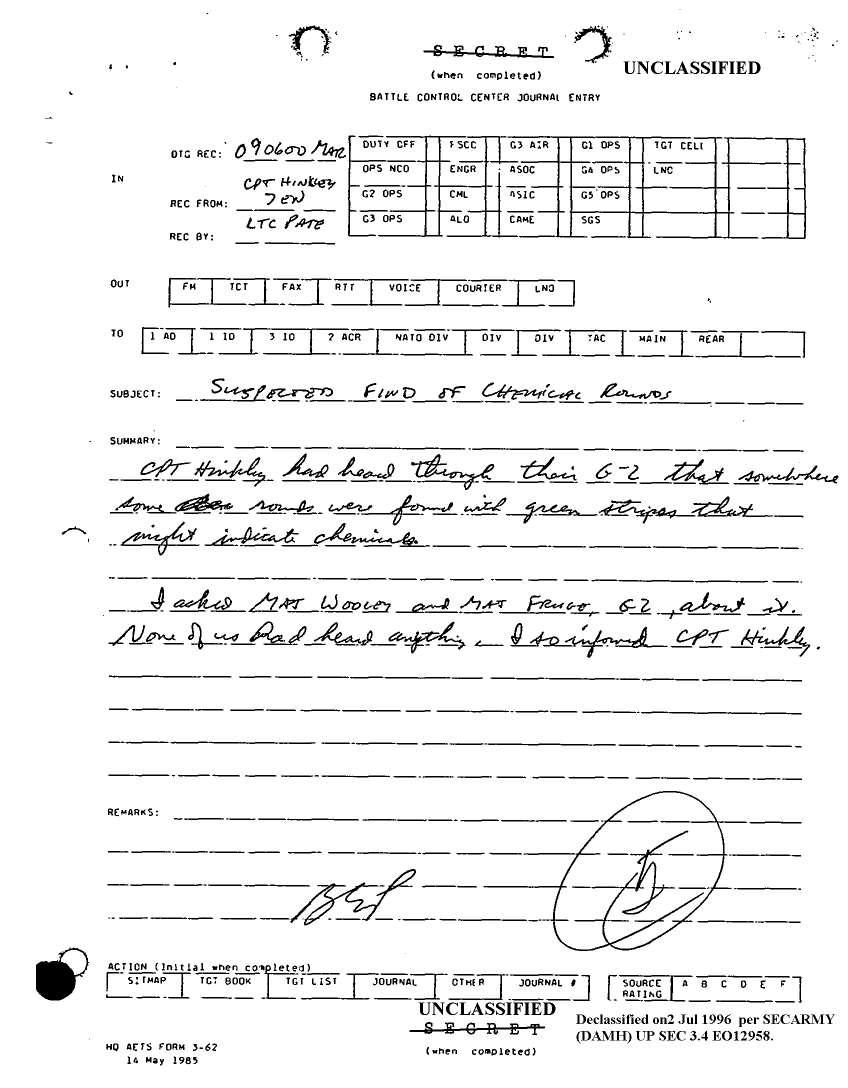 SECRET
(when completed)
UNCLASSIFIED
BATTLE CONTROL CENTER JOURNAL ENTRY
IN
DTG REC: 090600 MAR
REC FROM: CPT HINKLEY
REC BY: LTC PATE
DUTY OFF FSCC G3 AIR G1 OPS TGT CELL
OPS NCO ENGR ASOC G4 OPS LNO
G2 OPS CML ASIC G5 OPS
G3 OPS ALO CAME SGS
OUT FM TCT FAX RTT VOICE COURIER LNO
TO 1 AD 1 ID 3 ID 2 ACR NATO DIV DIV DIV TAC MAIN REAR
SUBJECT: SUSPECTED FIND OF CHEMICAL ROUNDS
SUMMARY:
CPT Hinkley had heard through their G-2 that somewhere
some rounds were found with green stripes that
might indicate chemicals.
I asked MAJ WOOLEY and MAJ, G2, about it.
None of us had heard anything. I so informed CPT Hinkley.
REMARKS:
ACTION (Initial when completed)
SITMAP TGT BOOK TGT LIST JOURNAL OTHER JOURNAL #
SOURCE RATING A B C D E F
UNCLASSIFIED
SECRET
(when completed)
Declassified on2 Jul 1996 per SECARMY
(DAMH) UP SEC 3.4 EO12958.
HQ AETS FORM 3-62
14 May 1985